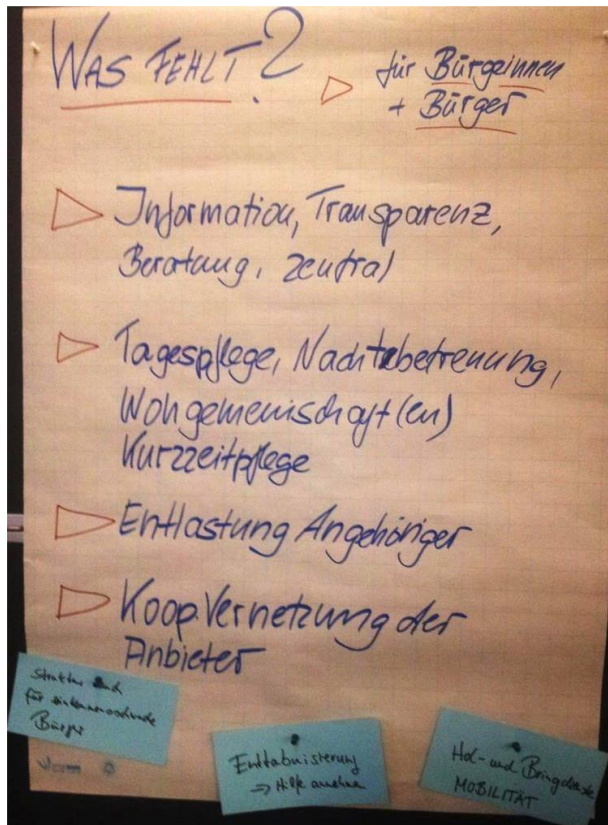 WAS FEHLT?
für Bürgeinnen
+ Bürger
Information, Transparenz,
Beratung, zentral
Tagespflege, Nachtbetreuung,
Wohgemeinschaft(en)
Kurzzeitpflege
Entlastung Angehöriger
Koop. Vernetzung der
Anbieter
für
Bürger
Enttabuisierung
⇒ Hilfe
Hol- und Bringdienste
MOBILITÄT